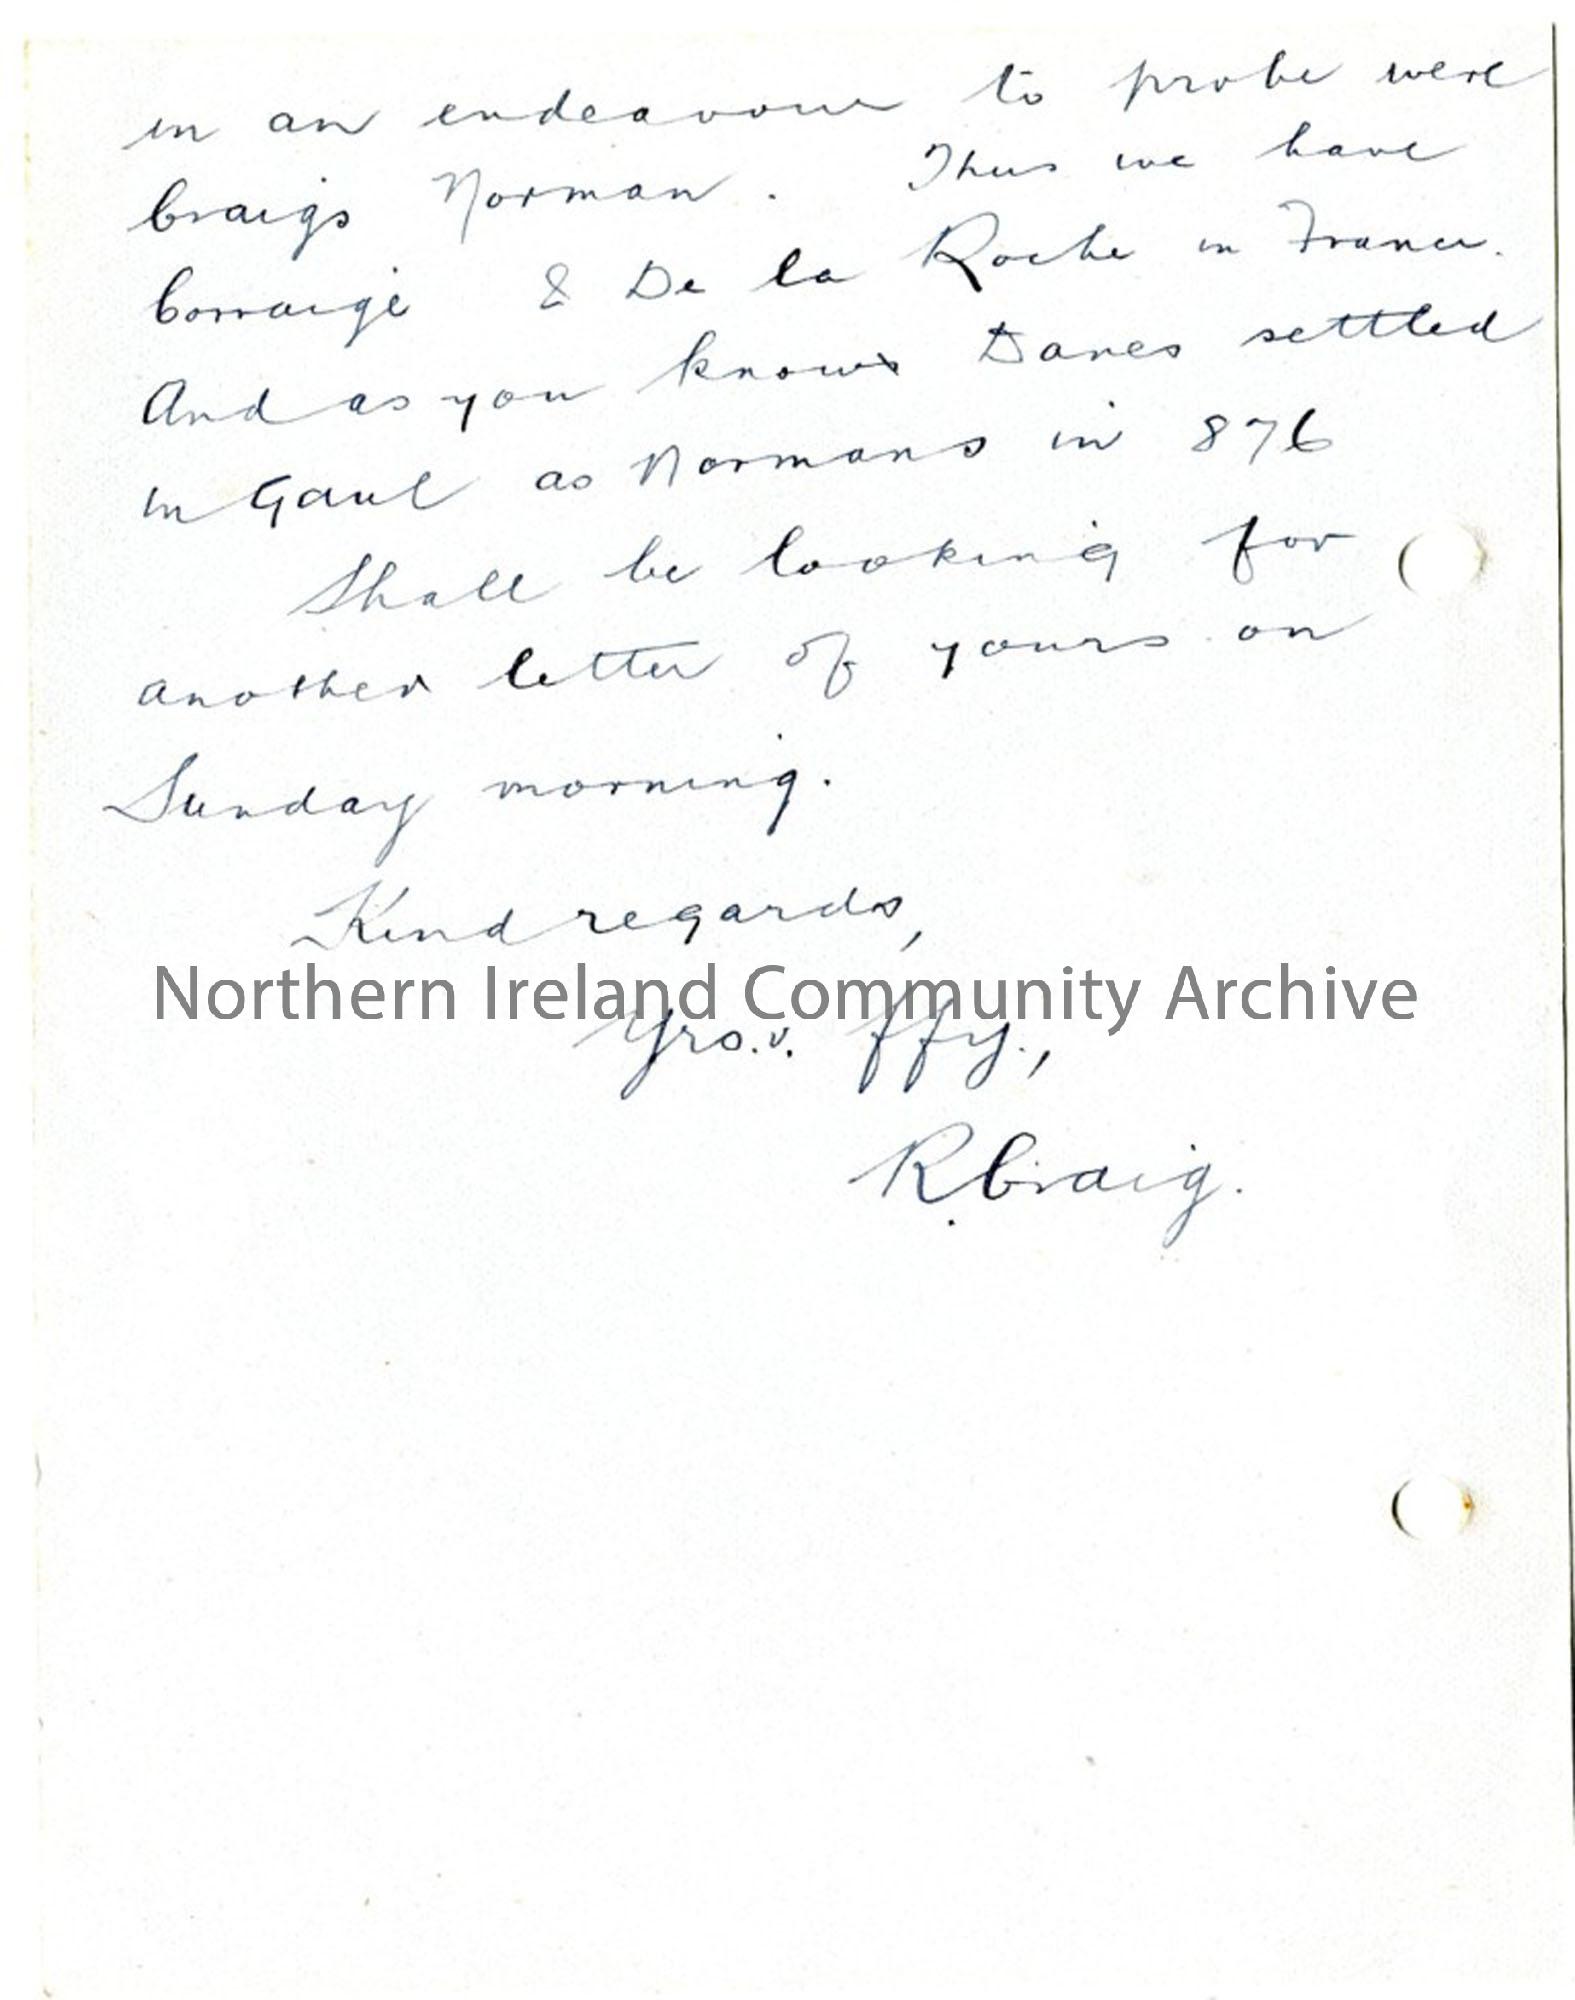 in an endeavour to probe were
Craigs Norman. Thus we have
Corraige & De la Roche in France.
And as you know Danes settled
in Gaul as Normans in 876
Shall be looking for
another letter of yours on
Sunday morning.
Kind regards,
Northern Ireland Community Archive
Yrs. v. ffy.,
R Craig.